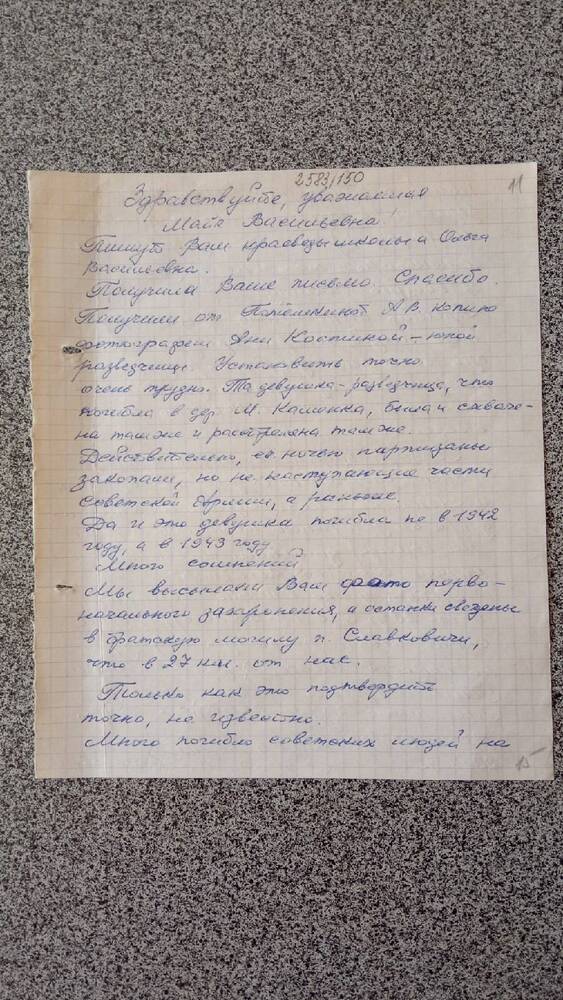 2583/150
11
Здравствуйте, уважаемая
Майя Васильевна!
Пишут Вам краеведы школы и Ольга
Васильевна.
Получили Ваше письмо. Спасибо.
Получили от Потёмкиной А.В. копию
фотографии Ани Костиной – юной
разведчицы. Установить точно
очень трудно. Та девушка-разведчица, что
погибла в дер. М. Калинка, была и схваче-
на там же и расстреляна там же.
Действительно, её ночью партизаны
закопали, но не наступающие части
Советской Армии, а раньше.
Да и эта девушка погибла не в 1942
году, а в 1943 году.
Много сомнений.
Мы высылали Вам фото перво-
начального захоронения, а останки свезены
в братскую могилу п. Славковичи,
что в 27 км. от нас.
Только как это подтвердить
точно, не известно.
Много погибло советских людей на
15